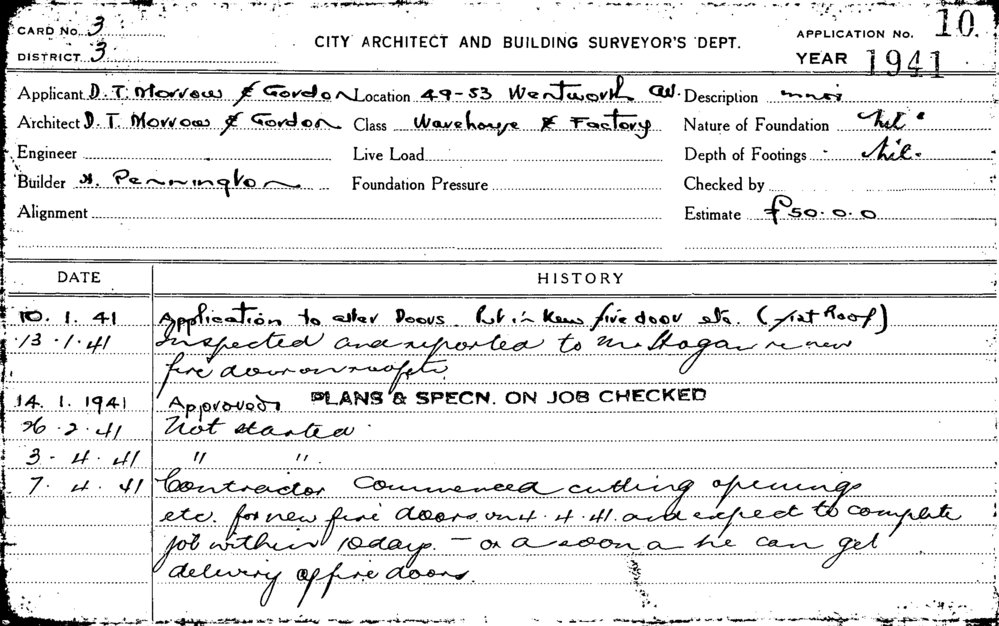 CARD No. 3
DISTRICT 3
CITY ARCHITECT AND BUILDING SURVEYOR'S DEPT.
APPLICATION No. 10.
YEAR 1941
Applicant D. T. Morrow & Gordon Location 49-53 Wentworth Av. Description
Architect D. T. Morrow & Gordon Class Warehouse & Factory Nature of Foundation Nil
Engineer Live Load Depth of Footings Nil.
Builder H. Pennington Foundation Pressure Checked by
Alignment Estimate £50.0.0
DATE HISTORY
10. 1. 41 Application to alter Doors. Put in new fire door etc. (flat Roof)
13. 1. 41 Inspected and reported to Mr Hogan re new
fire door on roof etc.
14. 1. 1941 Approved PLANS & SPECN. ON JOB CHECKED
26. 2. 41 Not started.
3. 4. 41 " ".
7. 4. 41 Contractor commenced cutting openings
etc. for new fire doors on 4. 4. 41. and expect to complete
job within 10 days. — or a soon a he can get
delivery of fire doors.